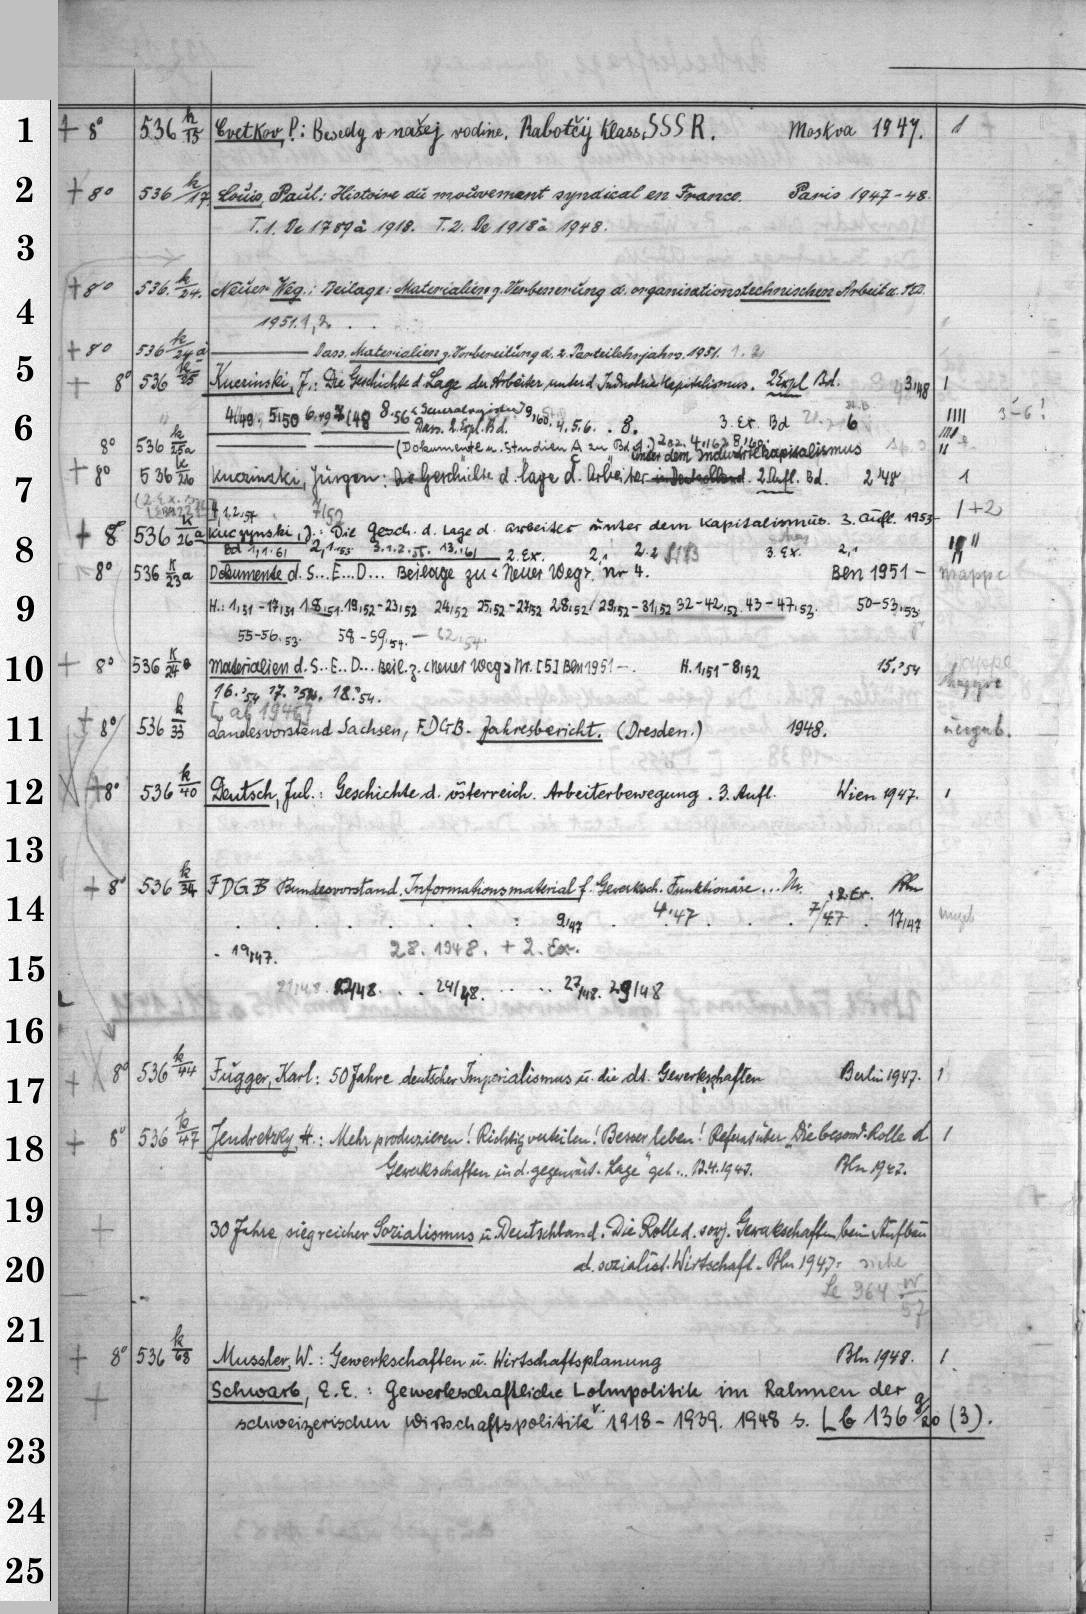 1 + 8° 536 k/15 Cvetkov, P.: Besedy v našej rodine. Rabočij Klass, SSSR. Moskva 1947. 1
2 + 8° 536 k/17. Louis, Paul: Histoire du mouvement syndical en France. Paris 1947-48.
T.1. De 1789 à 1918. T.2. De 1918 à 1948.
3
+ 8° 536. k/24. Neuer Weg.: Beilage: Materialien z. Verbesserung d. organisationstechnischen Arbeit d.
4 1951. 1, 2.
+ 8° 536 k/24 a Dass. Materialien z. Vorbereitung d. 2. Parteilehrjahrs. 1951. 1. 2
5 + 8° 536 k/25 Kuczinski, J.: Die Geschichte d. Lage der Arbeiter unter d. Industrie Kapitalismus. 2 Expl Bd. 3,48 1
6 4/49. 5,50 6,49 7/48 8.56 (Generalregister) 9,60. 4.5.6. . 8. 3. Ex. Bd 6 IIII 3-6!
Dass. 2. Expl. Bd.
8° 536 k/25a (Dokumente u. Studien zu Bd. unter dem Industriekapitalismus II
7 + 8° 536 k/26 Kuczinski, Jürgen: Die Geschichte d. Lage d. Arbeiter in Deutschland. 2. Aufl. Bd. 2,48 1
1,2,54 7/52 1+2
+ 8° 536 k/26a Kuczynski, J.: Die Gesch. d. Lage d. Arbeiter unter dem Kapitalismus. 3. Aufl. 1953-
8 Bd 1,1.61 2,1.53 3.1.2. 13,61 2. Ex. 2,1 2.2 3. Ex. 2,1
8° 536 k/23a Dokumente d. S...E...D... Beilage zu <Neuer Weg>, Nr 4. Bln 1951 - Mappe
9 H.: 1,51-17,51 18,51. 19,52-23,52 24,52 25,52-27,52 28,52/ 29,52-31,52 32-42,52. 43-47,52. 50-53,53.
55-56,53. 58-59,54. - 62,54.
10 + 8° 536 k/24 Materialien d. S...E...D... Beil. z. <Neuer Weg> Nr. [5] Bln 1951-. H. 1,51-8,52 15.,54 Mappe
16.,54 17.,54. 18.,54.
[ab 1946]
11 + 8° 536 k/33 Landesvorstand Sachsen, FDGB. Jahresbericht. (Dresden.) 1948. ungeb.
12 + 8° 536 k/40 Deutsch, Jul.: Geschichte d. österreich. Arbeiterbewegung. 3. Aufl. Wien 1947. 1
13
+ 8° 536 k/34 FDGB Bundesvorstand. Informationsmaterial f. Gewerksch. Funktionäre... Nr. + 2. Ex. Bln
14 . . . . . . : 9,47 . 4,47 . . . 7/47 . 17,47 ungeb
. 19,47. 28. 1948. + 2. Ex.
15 21,48. 22,48 . . 24/48. . . . 27,48. 29/48
16
17 + 8° 536 k/44 Fugger, Karl: 50 Jahre deutscher Imperialismus u. die dt. Gewerkschaften Berlin 1947. 1
18 + 8° 536 k/47 Jendretzky, H.: Mehr produzieren! Richtig verteilen! Besser leben! Referat über „Die besond. Rolle d 1
Gewerkschaften in d. gegenwärt. Lage" geh... 12.4.1947. Bln 1947.
19 + 30 Jahre siegreicher Sozialismus u. Deutschland. Die Rolle d. sowj. Gewerkschaften beim Aufbau
20 d. sozialist. Wirtschaft. Bln 1947. siehe
Le 964 W/57
21
+ 8° 536 k/68 Mussler, W.: Gewerkschaften u. Wirtschaftsplanung Bln 1948. 1.
22 + Schwarb, E.E.: Gewerkschaftliche Lohnpolitik im Rahmen der
schweizerischen Wirtschaftspolitik v. 1918-1939. 1948 s. Lb 136 g/20 (3).
23
24
25